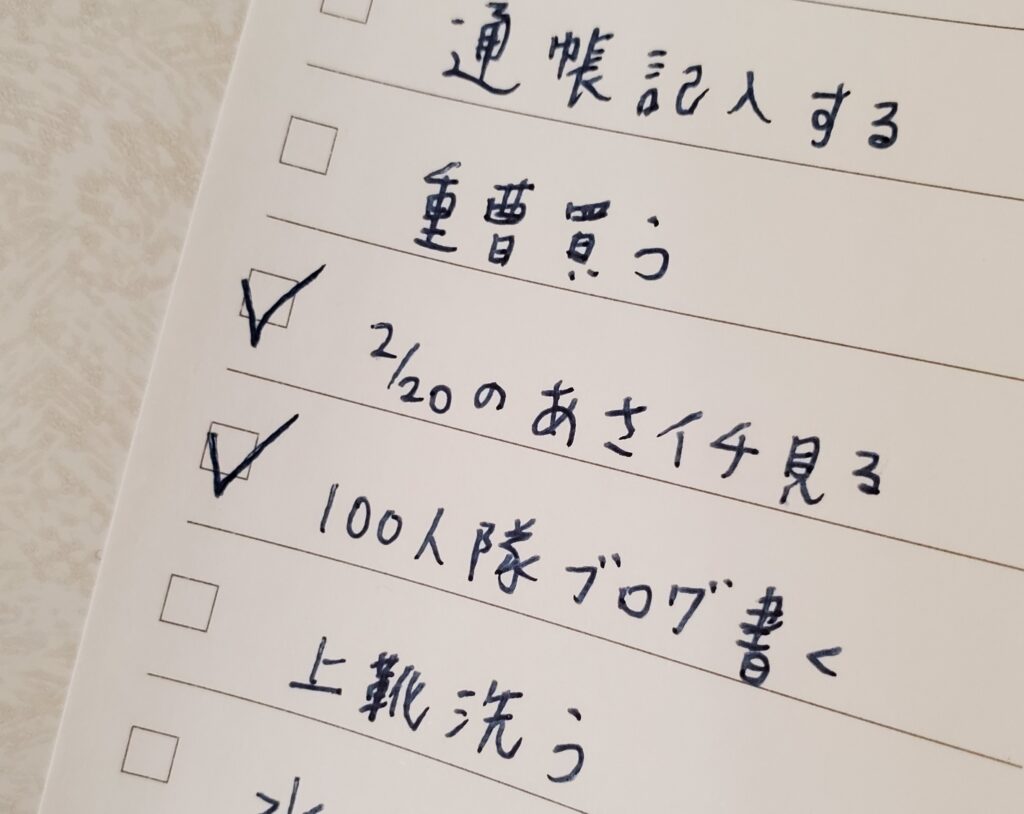 通帳記入する
重曹買う
2/20のあさイチ見る
100人隊ブログ書く
上靴洗う
水